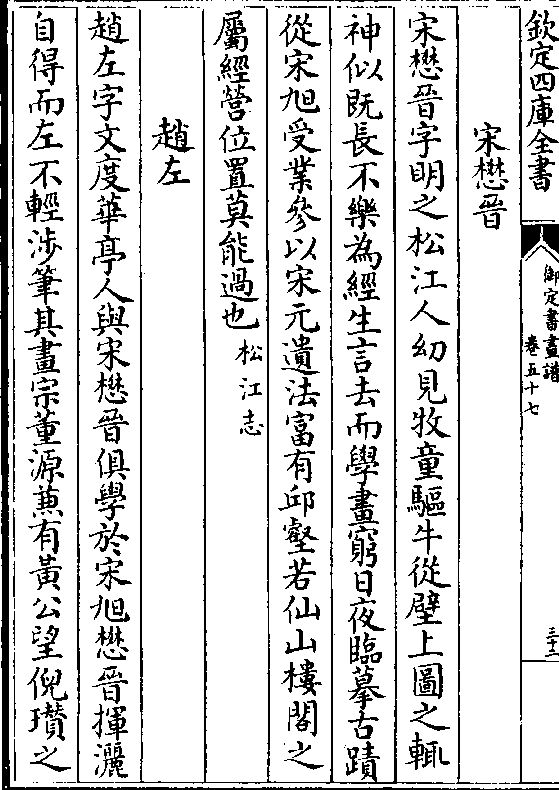 欽定四庫全書
御定書畫譜
卷五十七
三十二
宋懋晉
宋懋晉字明之松江人幼見牧童驅牛從壁上圖之輒
神似既長不樂為經生言去而學畫窮日夜臨摹古蹟
從宋旭受業參以宋元遺法富有邱壑若仙山樓閣之
屬經營位置莫能過也松江志
趙左
趙左字文度華亭人與宋懋晉俱學於宋旭懋晉揮灑
自得而左不輕涉筆其畫宗董源蕪有黃公望倪瓚之